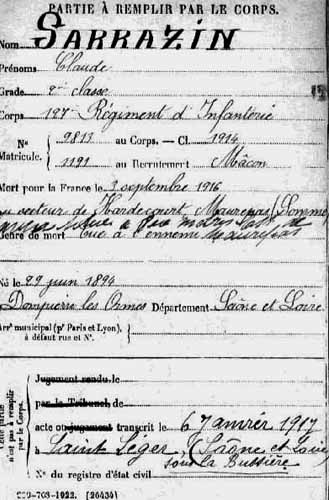 PARTIE À REMPLIR PAR LE CORPS.
Nom SARRAZIN
Prénoms Claude
Grade 2e classe
Corps 127e Régiment d'Infanterie
N° Matricule. 9813 au Corps. — Cl. 1914
1191 au Recrutement Mâcon
Mort pour la France le 3 septembre 1916
au secteur de Hardecourt, Maurepas (Somme
Genre de mort tué à l'ennemi
Né le 29 juin 1894
Dompierre les Ormes Département Saône et Loire
Arrt municipal (pr Paris et Lyon),
à défaut rue et N°.
cette partie
n'est pas à remplir
par le Corps.
Jugement rendu le
par le Tribunal de
acte ou jugement transcrit le 6 janvier 1917
à Saint Léger, (Saône et Loire
sous la Bussière
N° du registre d'état civil
[26434]